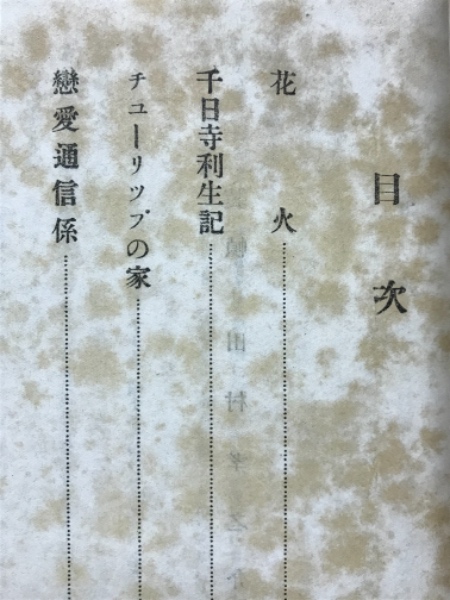 目次
花火
千日寺利生記
チューリツプの家
戀愛通信係